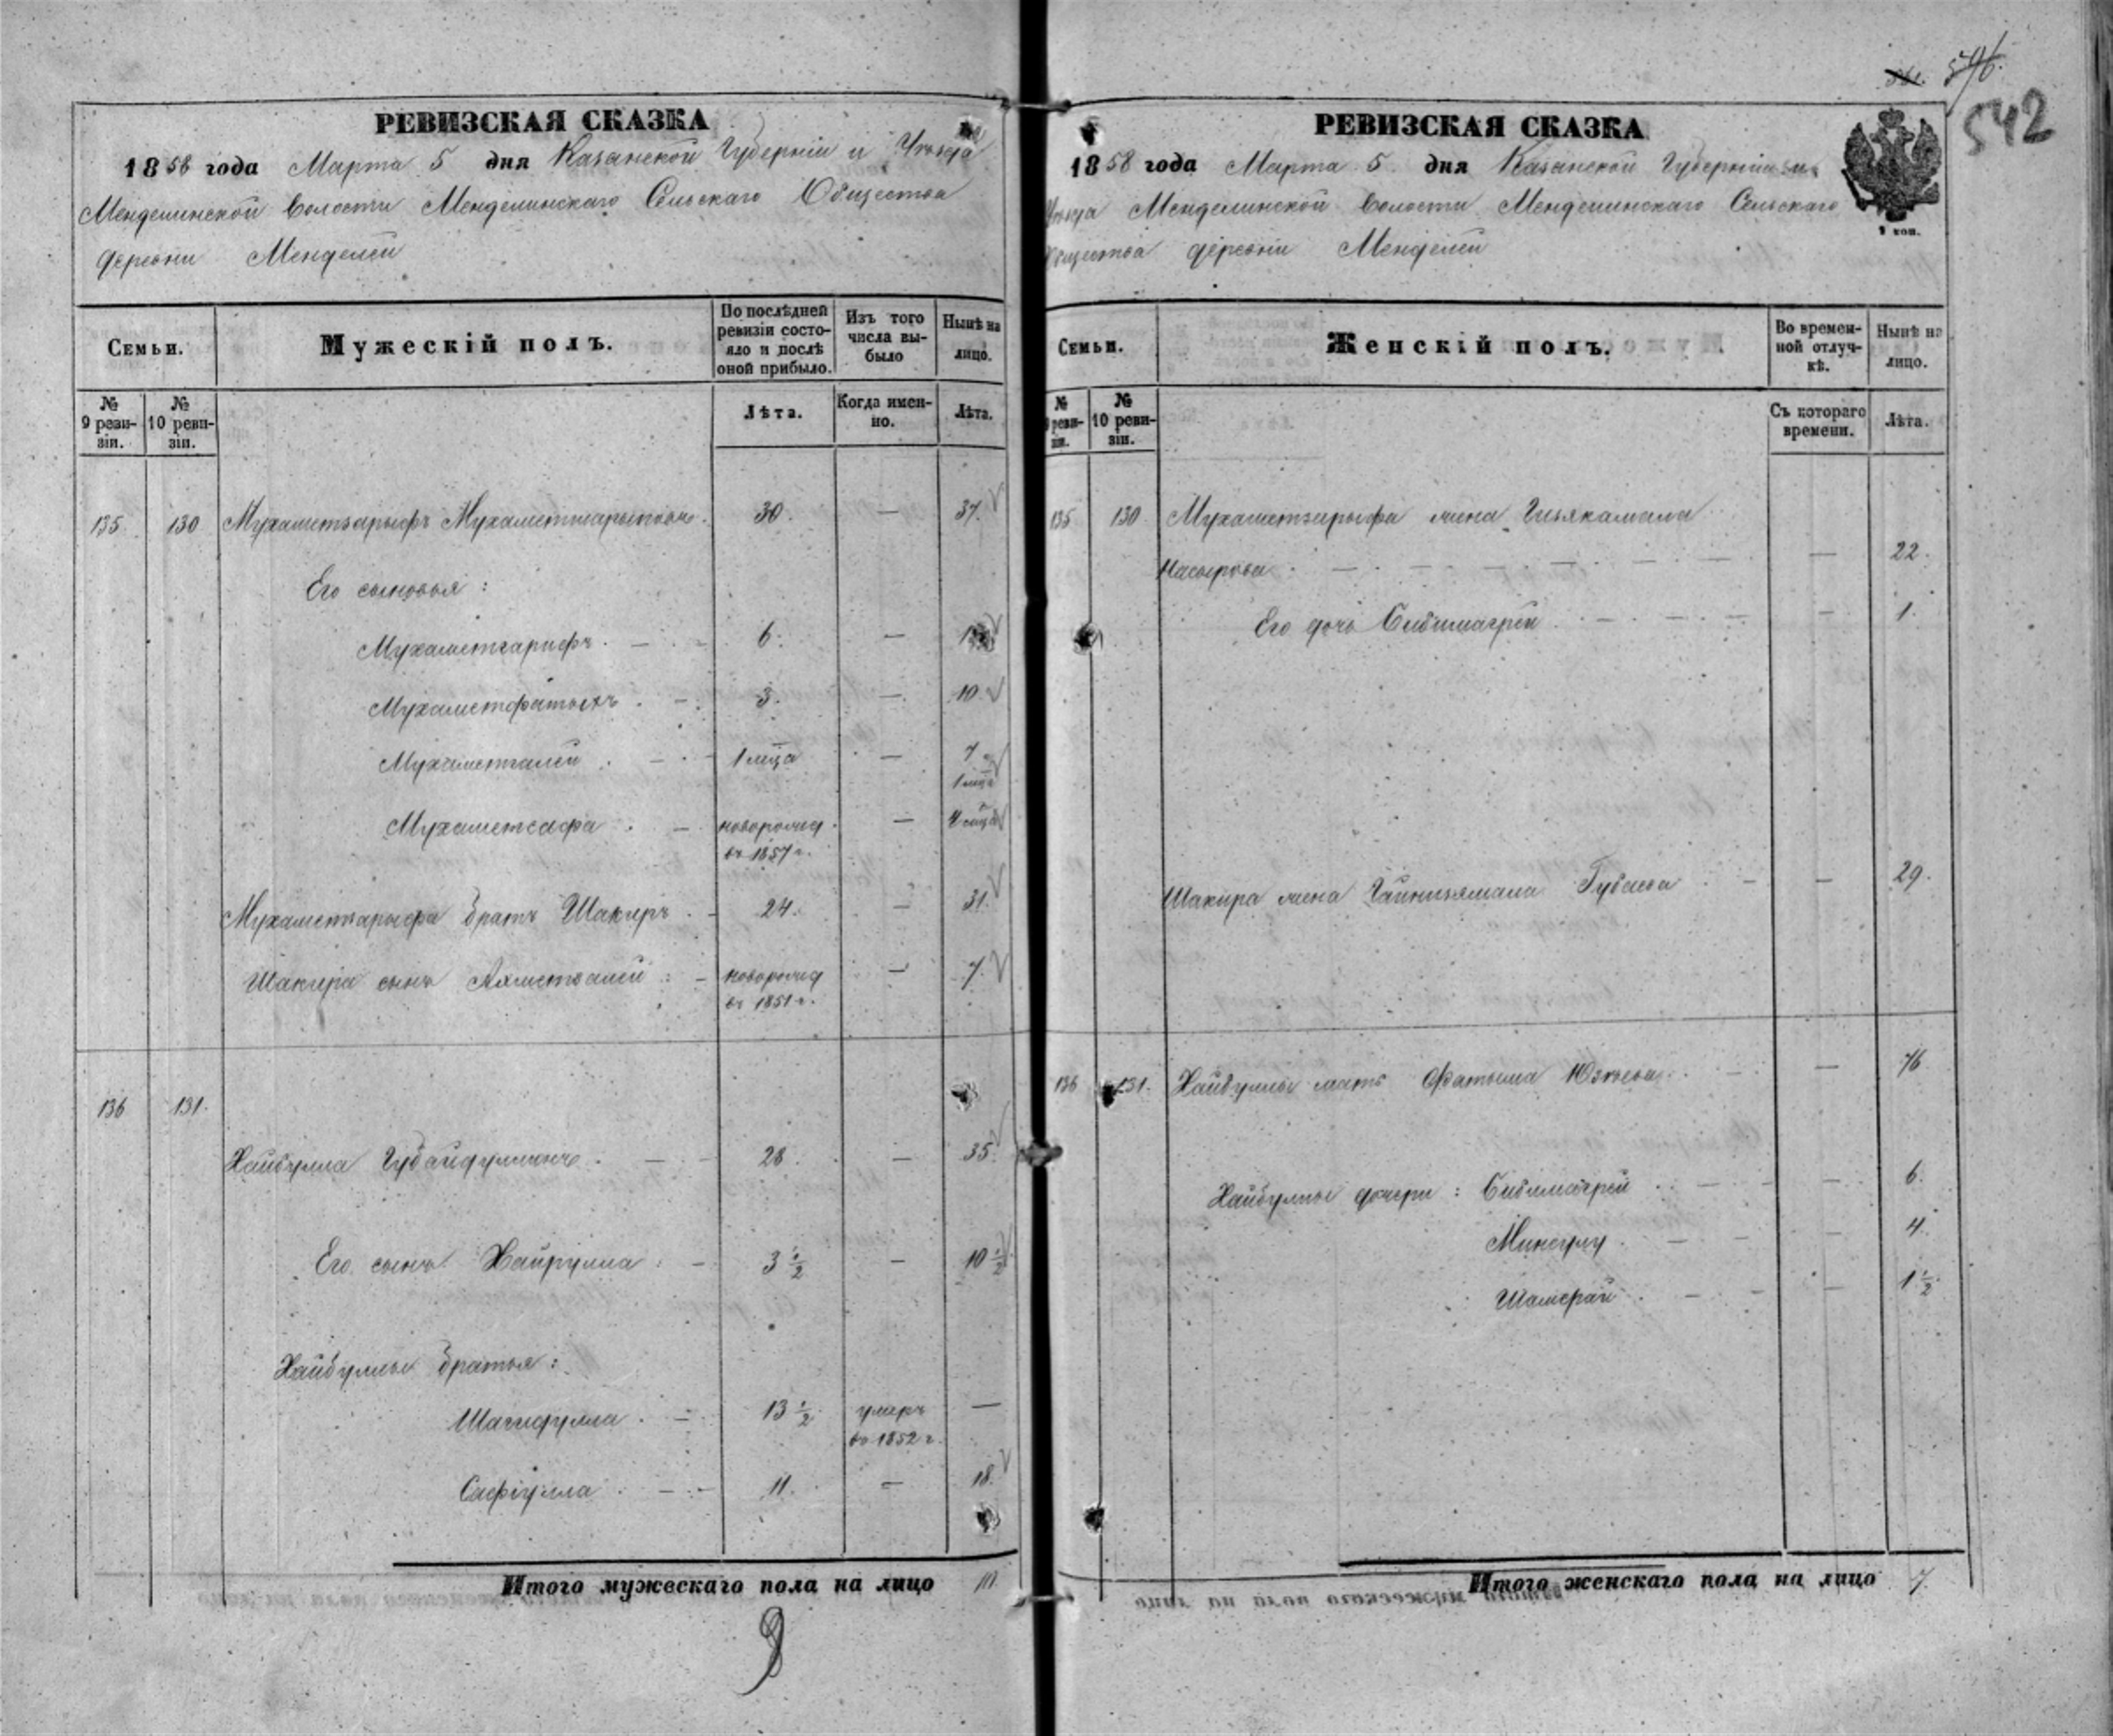 546.
542
РЕВИЗСКАЯ СКАЗКА
1858 года Марта 5 дня Казанской Губерніи и Уѣзда
Менделинской Волости Менделинскаго Сельскаго Общества
деревни Менделей
Семьи.
Мужескій полъ.
По послѣдней ревизіи состояло и послѣ оной прибыло.
Изъ того числа выбыло
Нынѣ на лицо.
№ 9 ревизіи.
№ 10 ревизіи.
Лѣта.
Когда именно.
Лѣта.
135 130 Мухаметзарыфъ Мухаметшарыповъ. 30. — 37.
Его сыновья:
Мухаметгарифъ. — 6. —
Мухаметфатыхъ. — 3. — 10.
Мухаметгалей. — 1 мца — 7 1 мца
Мухаметсафа. — новорожд. въ 1857 г. —
Мухаметзарыфа братъ Шакиръ. — 24. — 31.
Шакира сынъ Ахметгалей: — новорожд въ 1851 г. — 7.
136 131.
Хайбулла Губайдуллинъ. — 28. — 35.
Его сынъ Хайрулла: — 3 1/2 — 10 1/2
Хайбуллы братья:
Шагидулла. — 13 1/2 умеръ въ 1852 г. —
Сафіулла. — 11. — 18.
Итого мужескаго пола на лицо
9
РЕВИЗСКАЯ СКАЗКА
1858 года Марта 5 дня Казанской Губерніи и
Уѣзда Менделинской Волости Менделинскаго Сельскаго
Общества деревни Менделей
Семьи.
Женскій полъ.
Во временной отлучкѣ.
Нынѣ на лицо.
№ 9 ревизіи.
№ 10 ревизіи.
Съ котораго времени.
Лѣта.
135 130 Мухаметзарыфа жена
Насырова. — 22.
Его дочь Бибимагрей — 1.
Шакира жена Гайнизямала Губаева — 29.
136 131. Хайбуллы мать Фатыма Юзѣева. — 76
Хайбуллы дочери: Бибимагрей — 6.
Мингулу. — 4.
Шамсрай. — 1 1/2.
Итого женскаго пола на лицо 7.